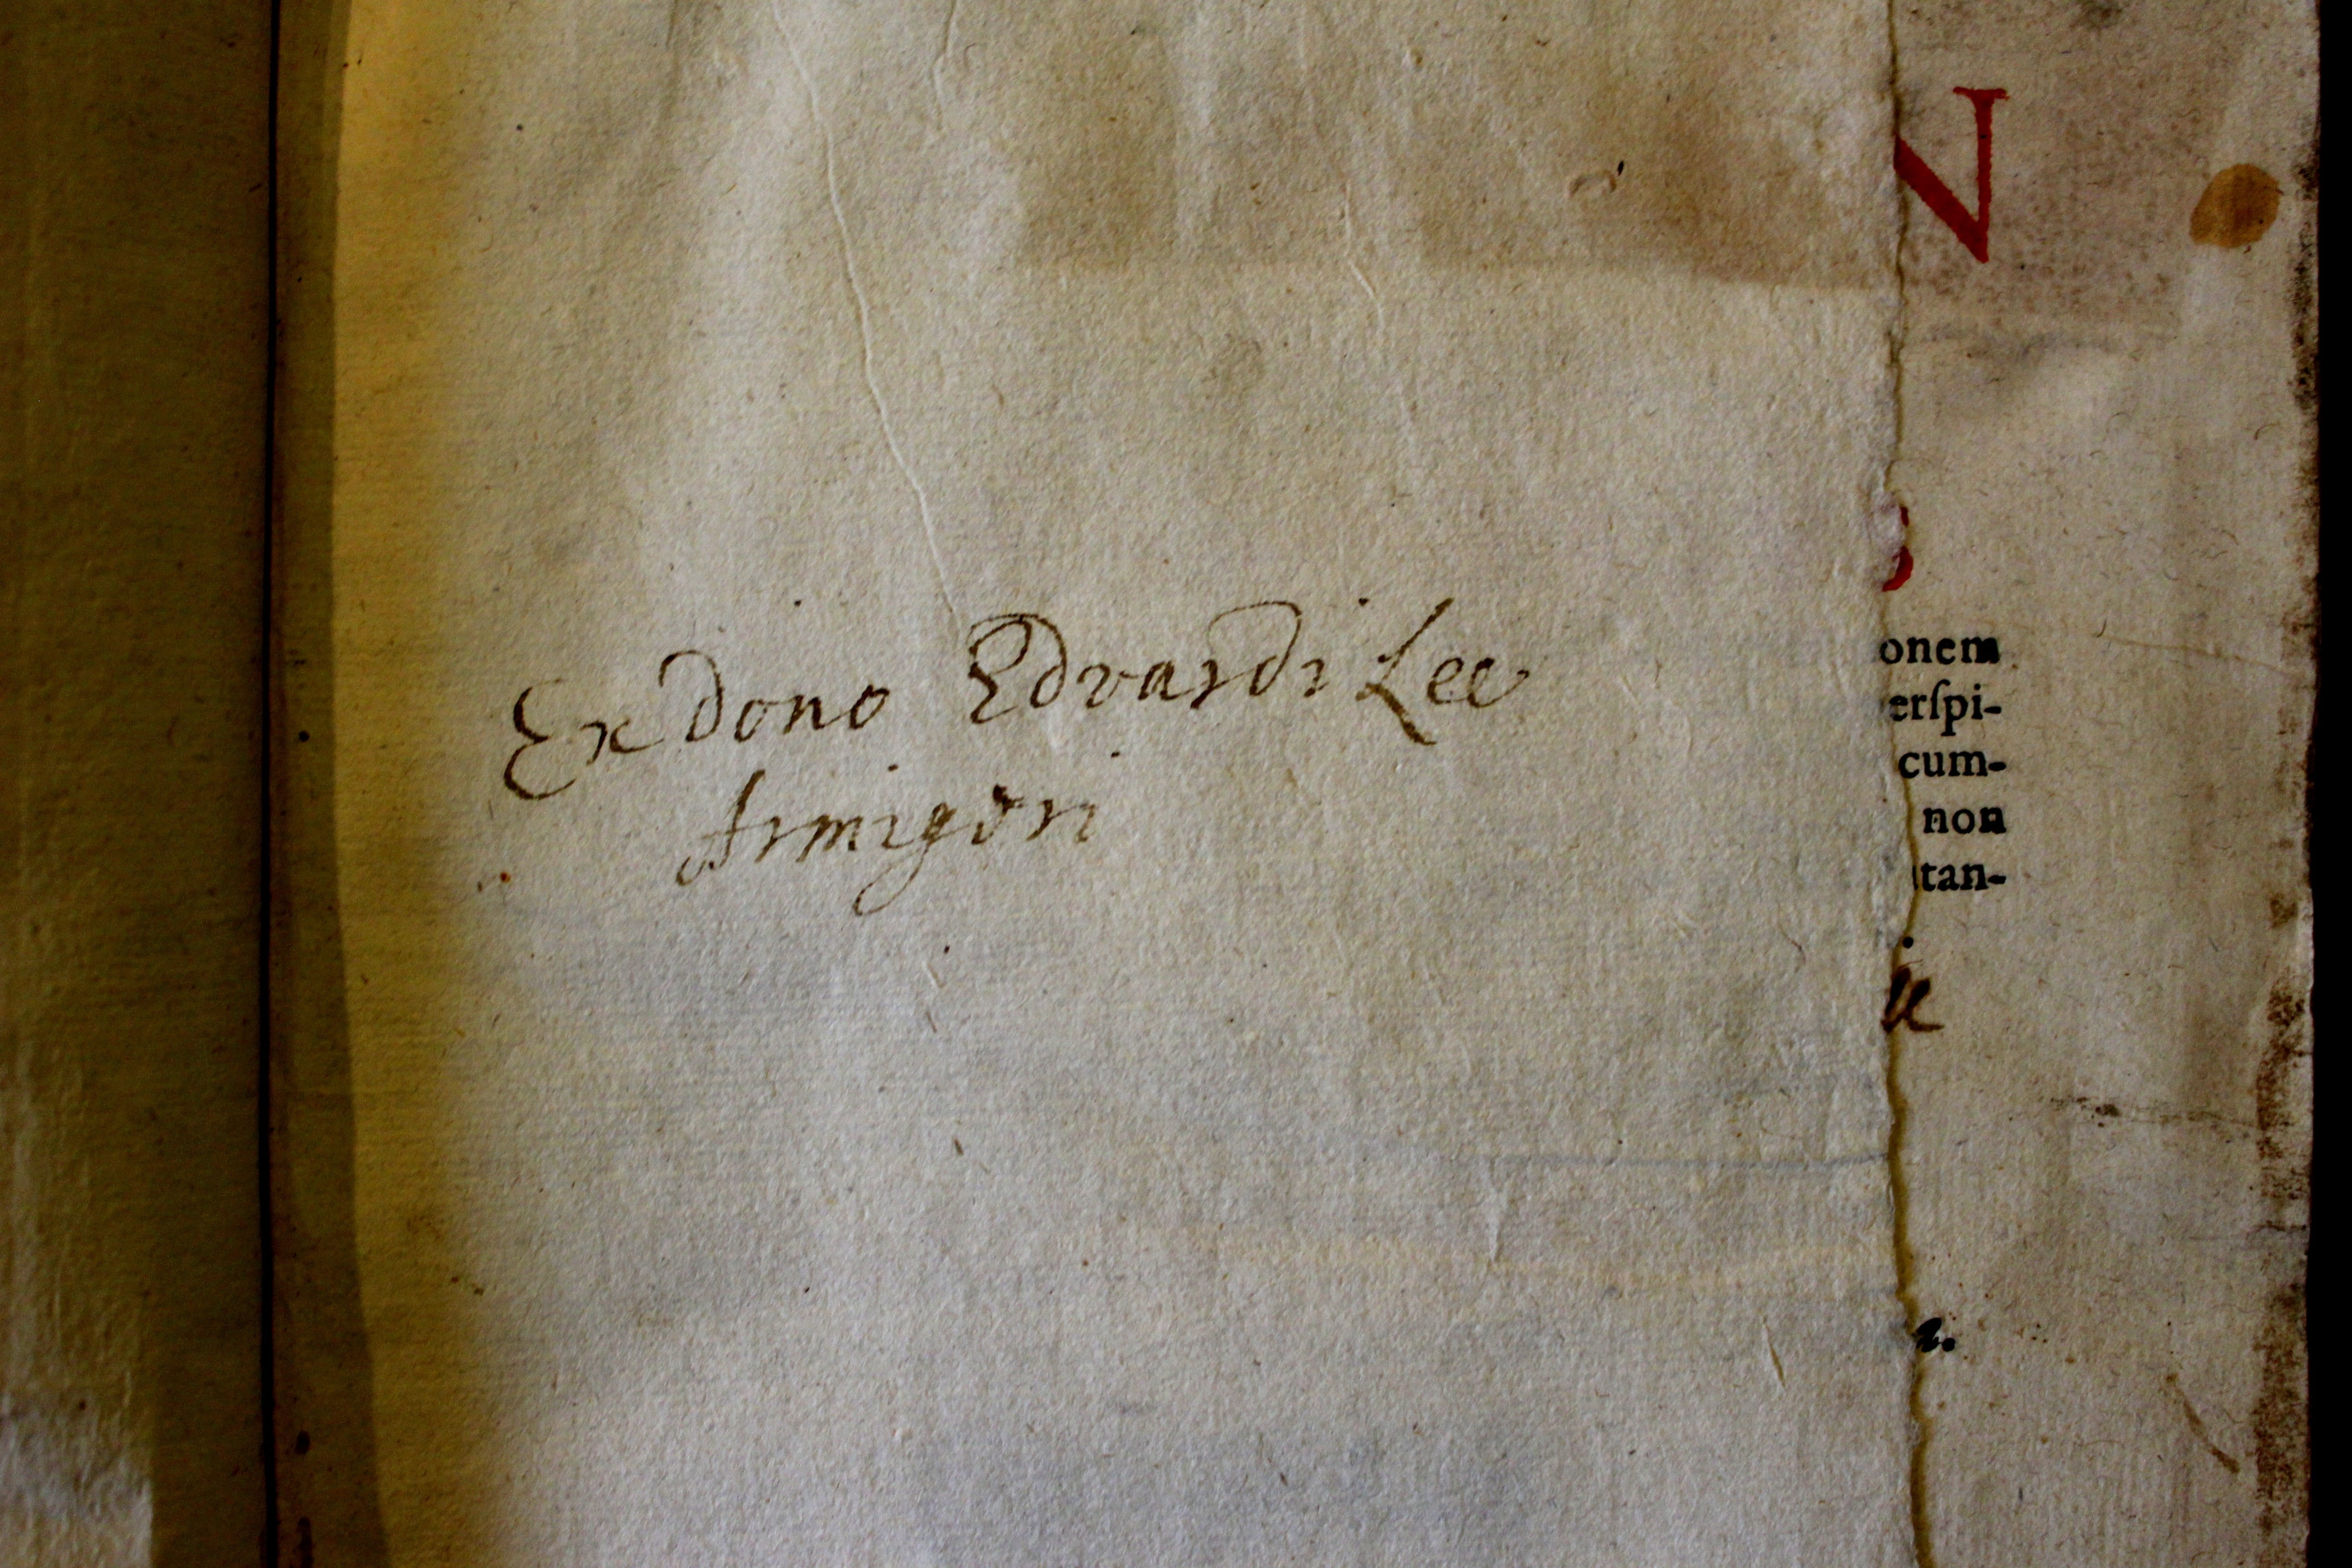 Ex dono Edvardi Lee
Armigeri
N
onem
erſpi-
cum-
non
tan-